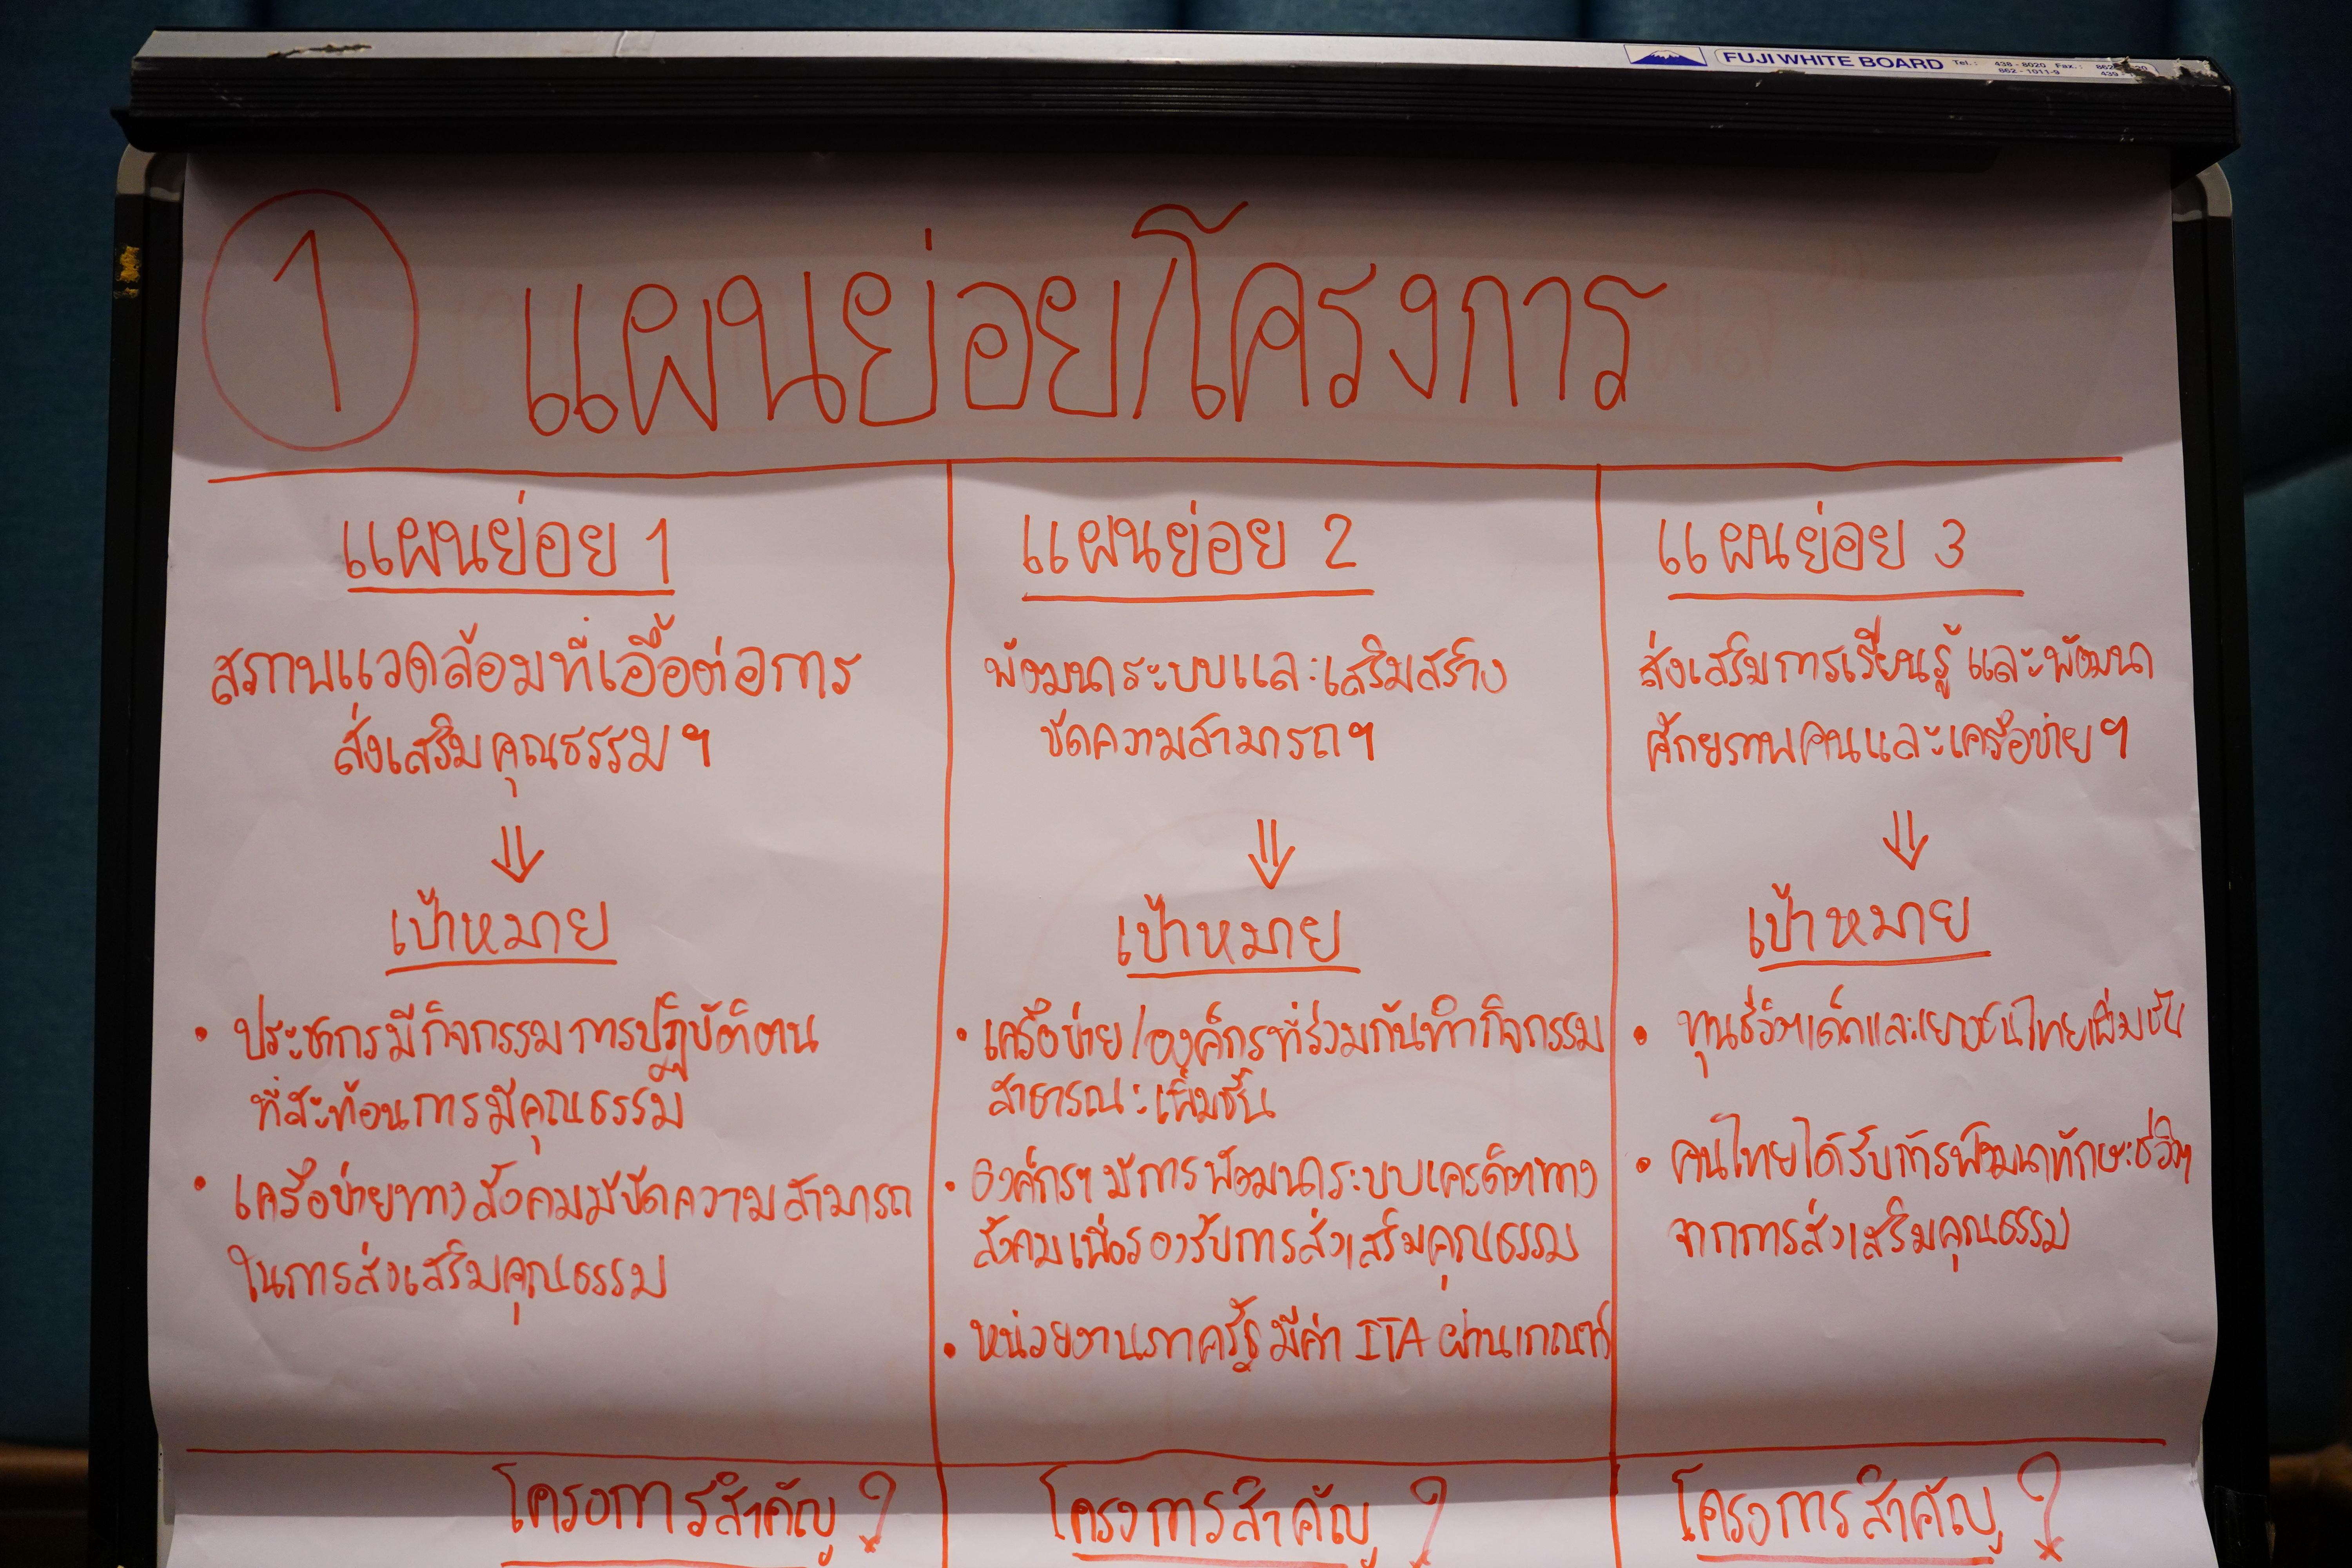 FUJI WHITE BOARD Tel.: 438-8020 Fax.:
862-1011-9
1 แผนย่อย/โครงการ
แผนย่อย 1
สภาพแวดล้อมที่เอื้อต่อการ
ส่งเสริมคุณธรรมฯ
⇓
เป้าหมาย
• ประชากรมีกิจกรรมการปฏิบัติตน
ที่สะท้อนการมีคุณธรรม
• เครือข่ายทางสังคมมีขีดความสามารถ
ในการส่งเสริมคุณธรรม
โครงการสำคัญ ?
แผนย่อย 2
พัฒนาระบบและเสริมสร้าง
ขีดความสามารถฯ
⇓
เป้าหมาย
• เครือข่าย/องค์กรที่ร่วมกันทำกิจกรรม
สาธารณะเพิ่มขึ้น
• องค์กรฯ มีการพัฒนาระบบเครดิตทาง
สังคมเพื่อรองรับการส่งเสริมคุณธรรม
• หน่วยงานภาครัฐมีค่า ITA ผ่านเกณฑ์
โครงการสำคัญ ?
แผนย่อย 3
ส่งเสริมการเรียนรู้ และพัฒนา
ศักยภาพคนและเครือข่ายฯ
⇓
เป้าหมาย
• ทุนชีวิตเด็กและเยาวชนไทยเพิ่มขึ้น
• คนไทยได้รับการพัฒนาทักษะชีวิต
จากการส่งเสริมคุณธรรม
โครงการสำคัญ ?